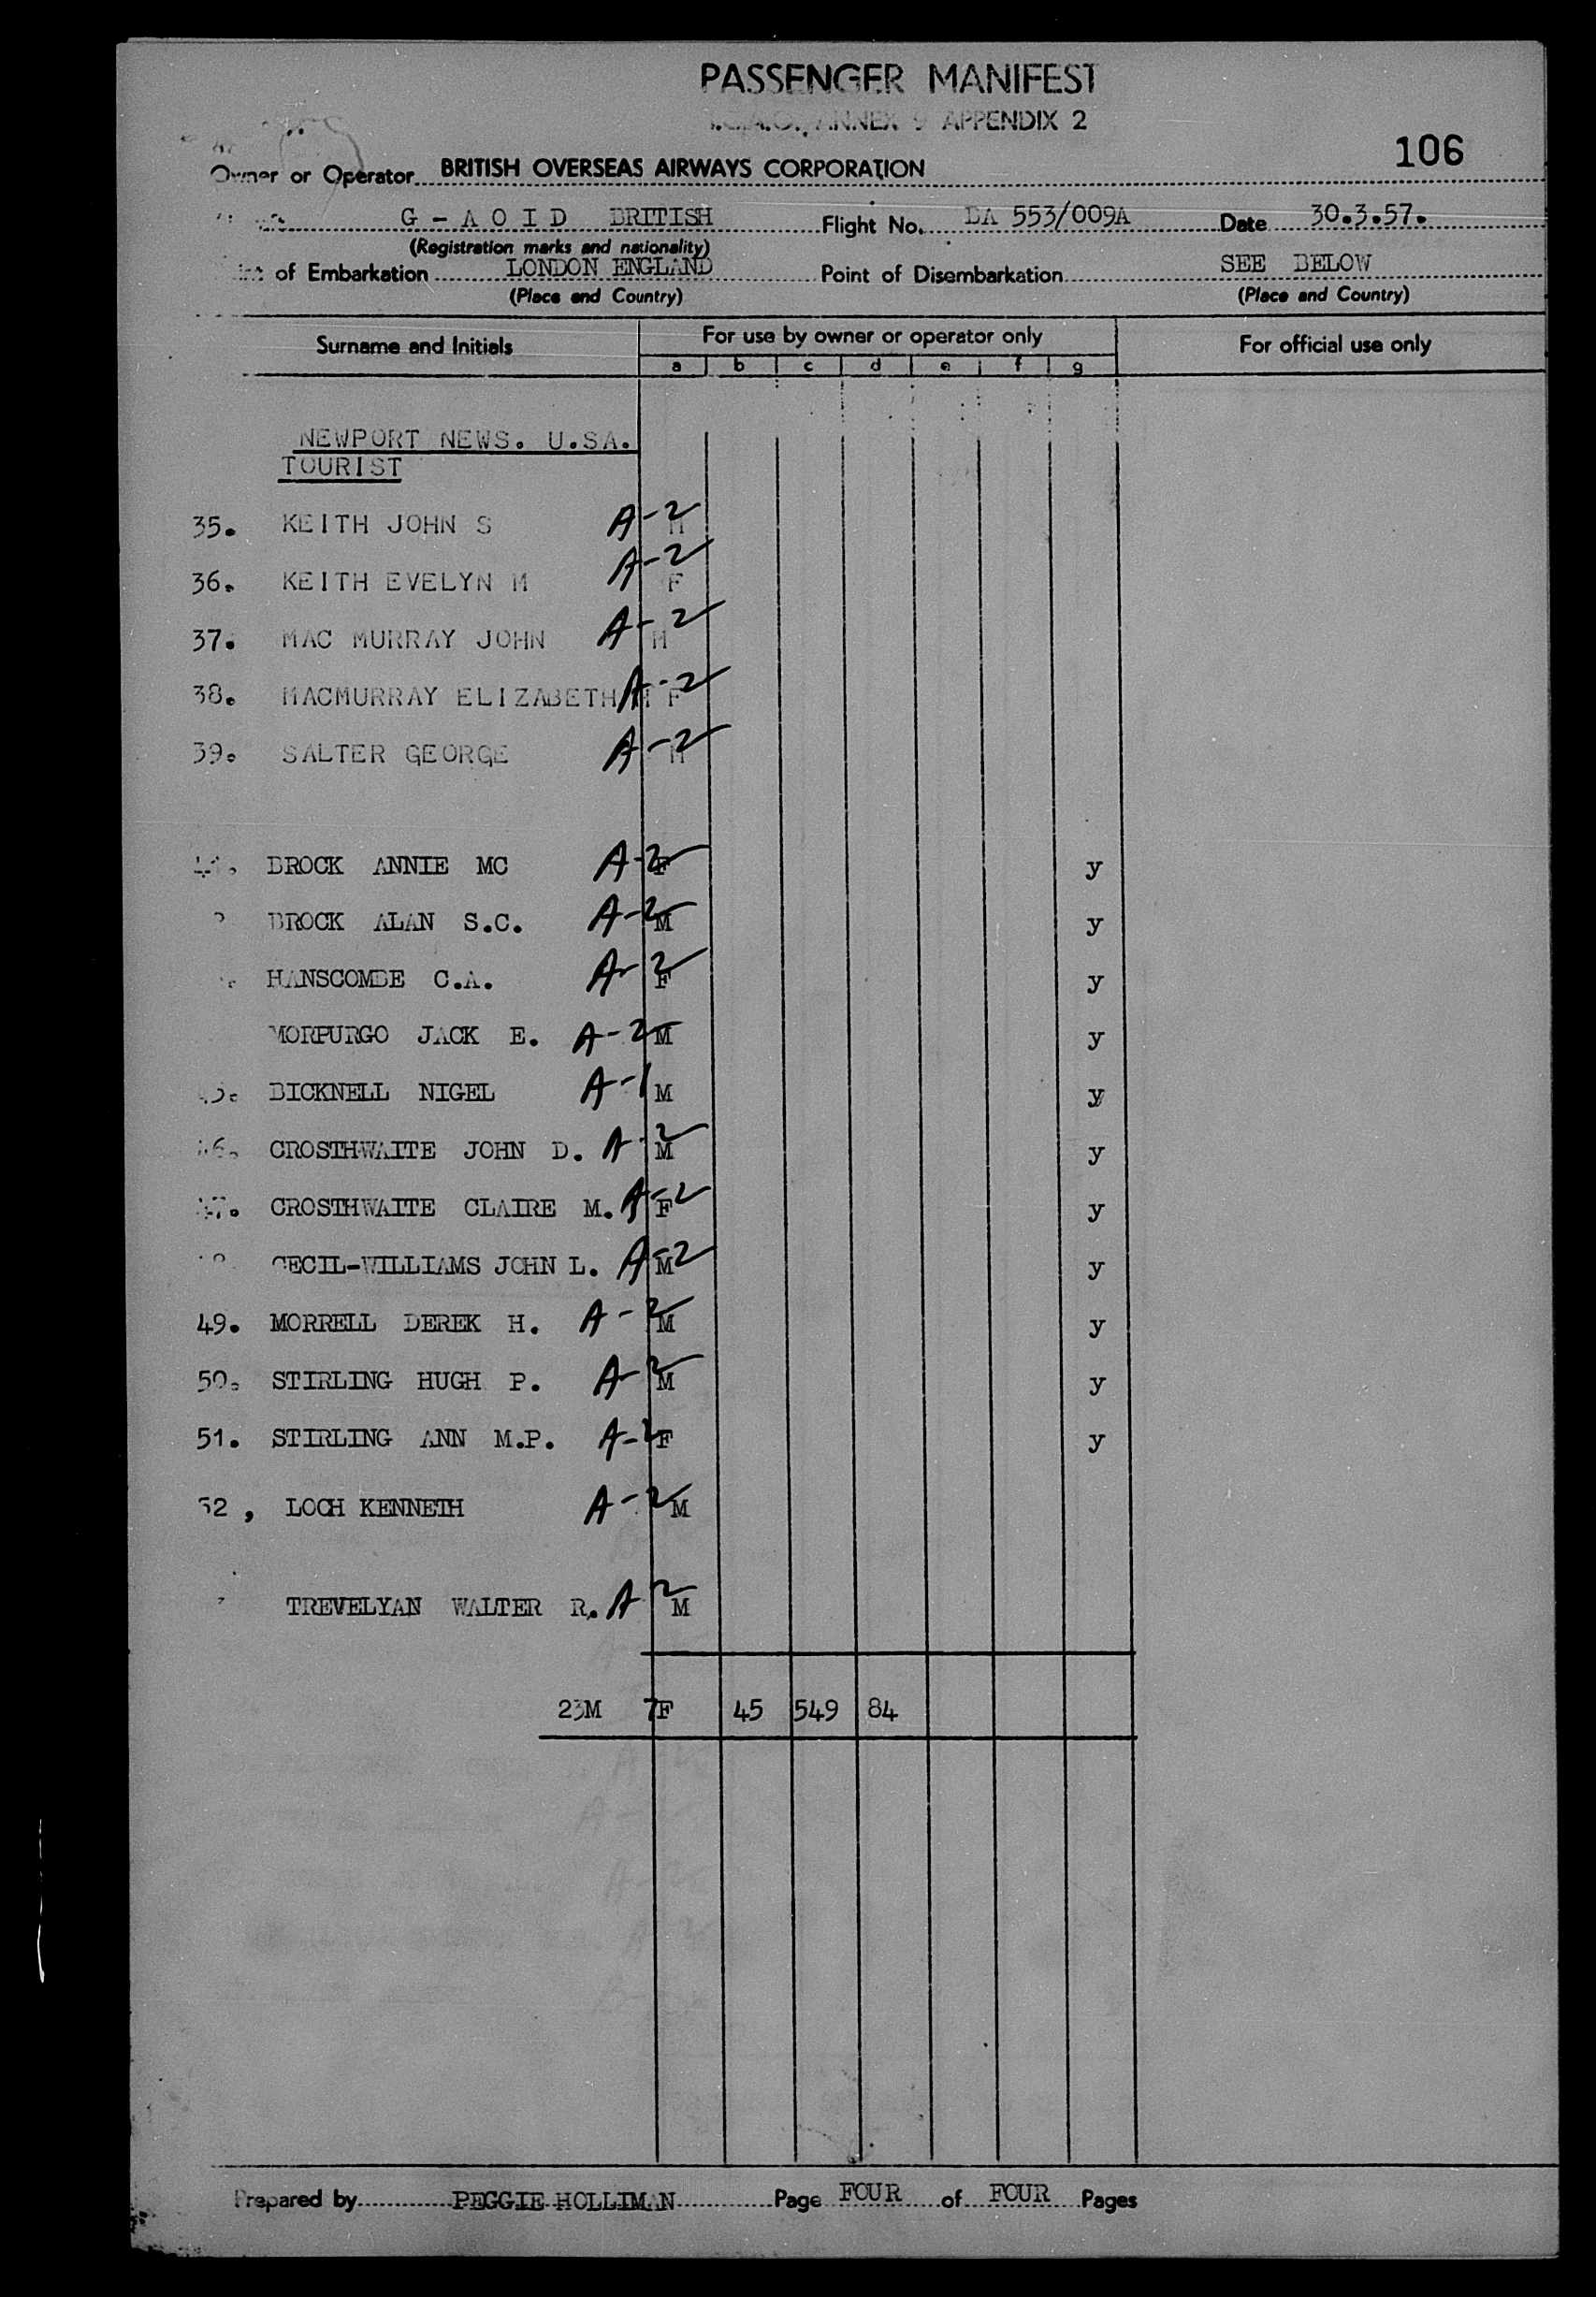 PASSENGER MANIFEST
I.C.A.O., ANNEX 9 APPENDIX 2
106
Owner or Operator BRITISH OVERSEAS AIRWAYS CORPORATION
G - A O I D BRITISH Flight No. BA 553/009A Date 30.3.57.
(Registration marks and nationality)
of Embarkation LONDON ENGLAND Point of Disembarkation SEE BELOW
(Place and Country) (Place and Country)
Surname and Initials For use by owner or operator only For official use only
a b c d e f g
NEWPORT NEWS. U.SA.
TOURIST
35. KEITH JOHN S A-2 M
36. KEITH EVELYN M A-2 F
37. MAC MURRAY JOHN A-2 M
38. MACMURRAY ELIZABETH M A-2 F
39. SALTER GEORGE A-2 M
BROCK ANNIE MC A-2 F y
BROCK ALAN S.C. A-2 M y
HANSCOMBE C.A. A-2 F y
MORPURGO JACK E. A-2 M y
BICKNELL NIGEL A-1 M y
46. CROSTHWAITE JOHN D. A-2 M y
47. CROSTHWAITE CLAIRE M. A-2 F y
CECIL-WILLIAMS JOHN L. A-2 M y
49. MORRELL DEREK H. A-2 M y
50. STIRLING HUGH P. A-2 M y
51. STIRLING ANN M.P. A-2 F y
52, LOCH KENNETH A-2 M
TREVELYAN WALTER R. A 2 M
23M 7F 45 549 84
Prepared by PEGGIE HOLLIMAN Page FOUR of FOUR Pages